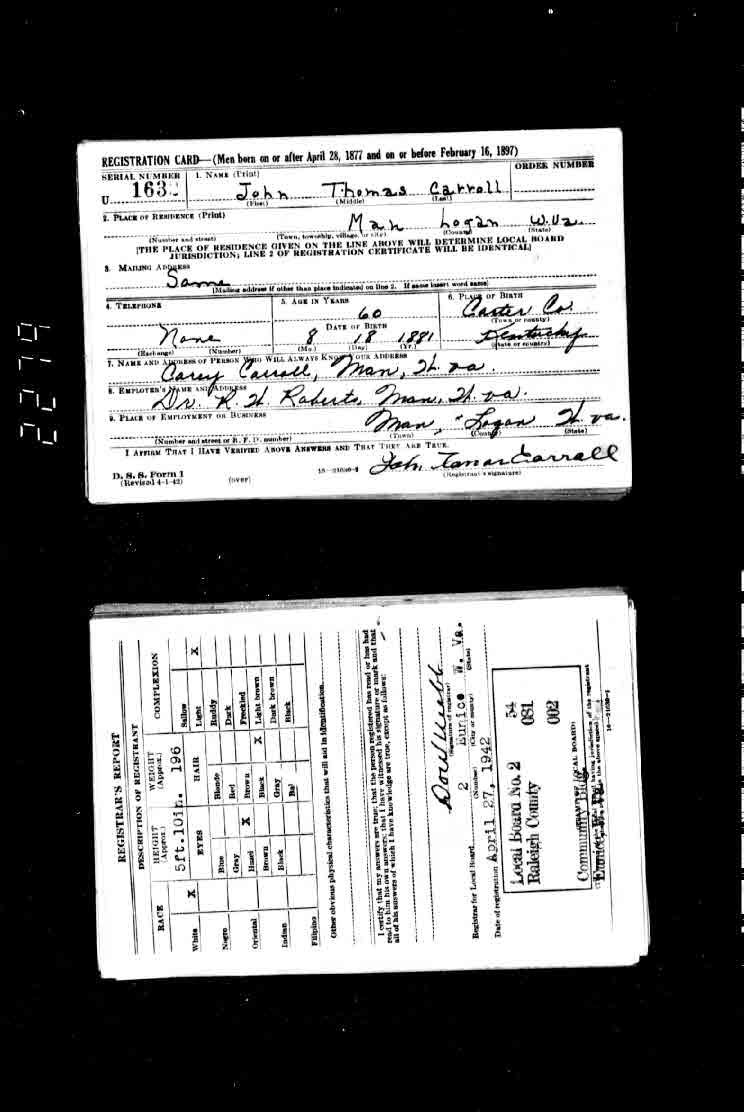 REGISTRATION CARD—(Men born on or after April 28, 1877 and on or before February 16, 1897)
SERIAL NUMBER 1. NAME (Print) ORDER NUMBER
U 163
John Thomas Carroll
(First) (Middle) (Last)
2. PLACE OF RESIDENCE (Print)
Man Logan W.Va.
(Number and street) (Town, township, village, or city) (County) (State)
[THE PLACE OF RESIDENCE GIVEN ON THE LINE ABOVE WILL DETERMINE LOCAL BOARD
JURISDICTION; LINE 2 OF REGISTRATION CERTIFICATE WILL BE IDENTICAL]
3. MAILING ADDRESS
Same
[Mailing address if other than place indicated on line 2. If same insert word same]
4. TELEPHONE 5. AGE IN YEARS 6. PLACE OF BIRTH
60 Carter Co.
DATE OF BIRTH (Town or county)
None 8 18 1881 Kentucky
(Exchange) (Number) (Mo.) (Day) (Yr.) (State or country)
7. NAME AND ADDRESS OF PERSON WHO WILL ALWAYS KNOW YOUR ADDRESS
Carroll, Man, W. va.
8. EMPLOYER'S NAME AND ADDRESS
Dr. R. H. Roberts, Man, W. va.
9. PLACE OF EMPLOYMENT OR BUSINESS
Man, Logan W. va.
(Number and street or R. F. D. number) (Town) (County) (State)
I AFFIRM THAT I HAVE VERIFIED ABOVE ANSWERS AND THAT THEY ARE TRUE.
John Carrall
D. S. S. Form 1
(Revised 4-1-42) (over) 16—21630-2 (Registrant's signature)
2279
REGISTRAR'S REPORT
DESCRIPTION OF REGISTRANT
RACE HEIGHT (Approx.) WEIGHT (Approx.) COMPLEXION
5ft.10in. 196 Sallow
White X EYES HAIR Light X
Blue Blonde Ruddy
Negro Gray Red Dark
Hazel X Brown Freckled
Oriental Brown Black X Light brown
Black Gray Dark brown
Indian Bald Black
Filipino
Other obvious physical characteristics that will aid in identification
I certify that my answers are true; that the person registered has read or has had
read to him his own answers; that I have witnessed his signature or mark and that
all of his answers of which I have knowledge are true, except as follows:
Webb
(Signature of registrar)
Registrar for Local Board 2 Eunice W. Va.
(Number) (City or county) (State)
Date of registration April 27, 1942
Local Board No. 2 54
Raleigh County 081
002
Community Bldg.
(STAMP OF LOCAL BOARD)